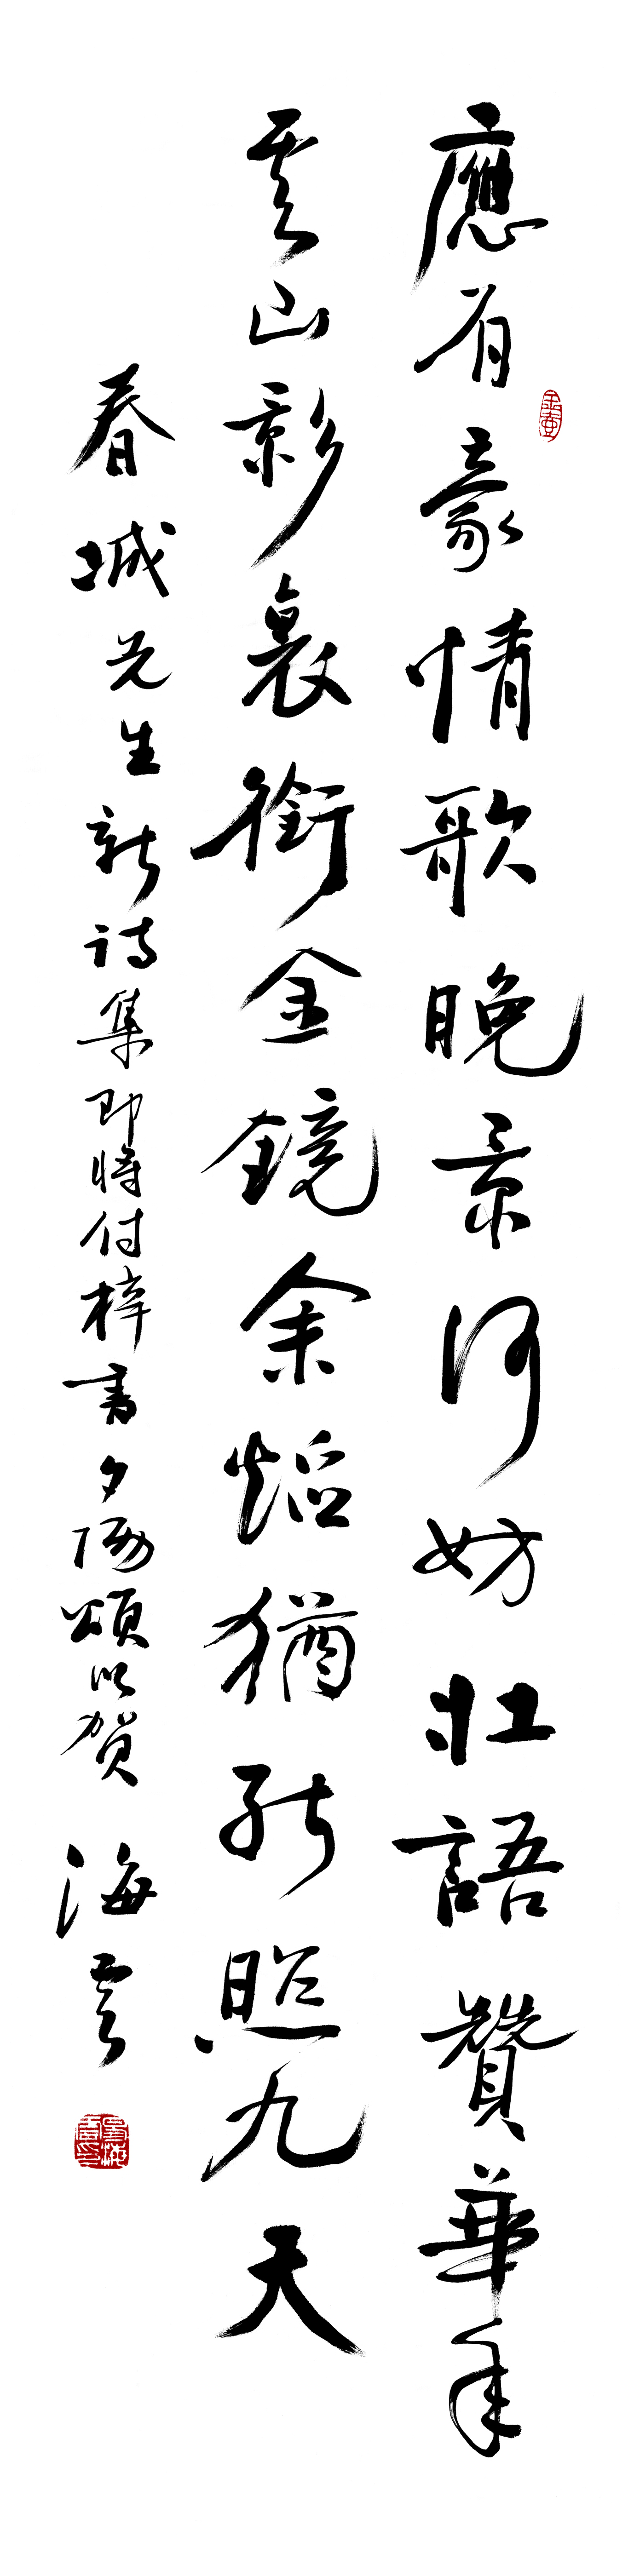 應有豪情歌晚景何妨壯語贊華年
雲山影裏銜金鏡余焰猶能照九天
春城先生新詩集即將付梓書夕陽頌以賀 海雲